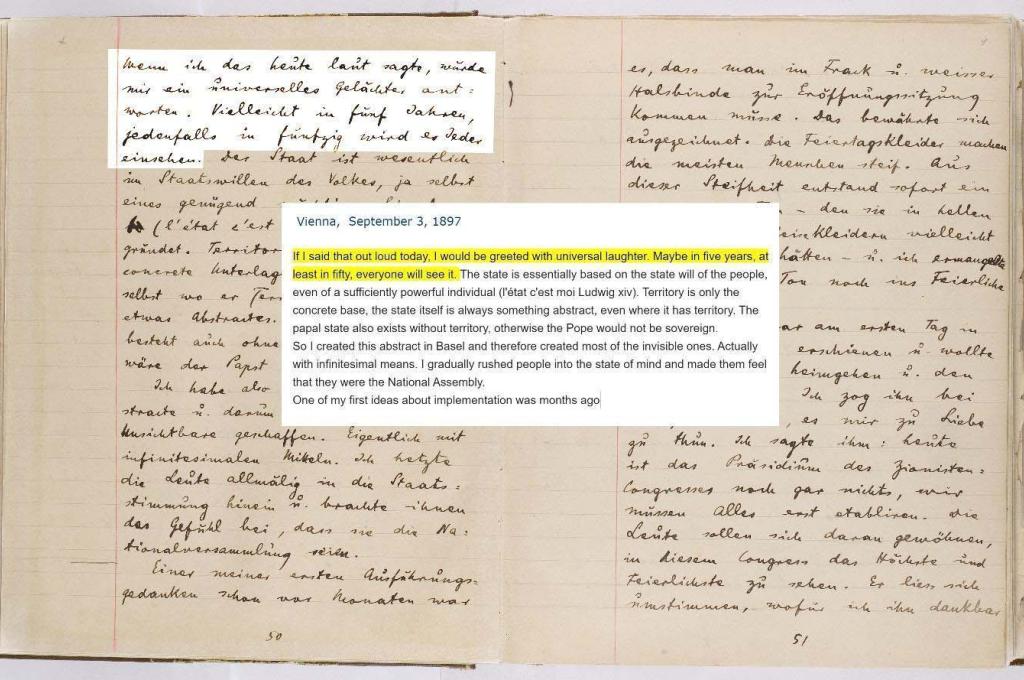 Wenn ich das heute laut sagte, würde
mir ein universelles Gelächter ant=
worten. Vielleicht in fünf Jahren,
jedenfalls in fünfzig wird es Jeder
einsehen. Der Staat ist wesentlich
im Staatswillen des Volkes, ja selbst
eines genügend
(l'état c'est
gründet. Territor
concrete Unterlag
selbst wo er Terr
etwas Abstractes.
besteht auch ohne
wäre der Papst
Ich habe also
stracte u. darum
Unsichtbare geschaffen. Eigentlich mit
infinitesimalen Mitteln. Ich hetzte
die Leute allmälig in die Staats=
stimmung hinein u. brachte ihnen
das Gefühl bei, dass sie die Na=
tionalversammlung seien.
Einer meiner ersten Ausführungs=
gedanken schon vor Monaten war
50
Vienna, September 3, 1897
If I said that out loud today, I would be greeted with universal laughter. Maybe in five years, at
least in fifty, everyone will see it. The state is essentially based on the state will of the people,
even of a sufficiently powerful individual (l'état c'est moi Ludwig xiv). Territory is only the
concrete base, the state itself is always something abstract, even where it has territory. The
papal state also exists without territory, otherwise the Pope would not be sovereign.
So I created this abstract in Basel and therefore created most of the invisible ones. Actually
with infinitesimal means. I gradually rushed people into the state of mind and made them feel
that they were the National Assembly.
One of my first ideas about implementation was months ago
es, dass man im Frack u. weisser
Halsbinde zur Eröffnungssitzung
kommen müsse. Das bewährte sich
ausgezeichnet. Die Feiertagskleider machen
die meisten Menschen steif. Aus
dieser Steifheit entstand sofort ein
– den sie in hellen
eisekleidern vielleicht
hätten – u. ich ermangelte
Ton noch ins Feierliche
ar am ersten Tag in
erschienen u. wollte
heimgehen u. den
Ich zog ihn bei
, es mir zu Liebe
zu thun. Ich sagte ihm: heute
ist das Präsidium des Zionisten=
Congresses noch gar nichts, wir
müssen Alles erst etabliren. Die
Leute sollen sich daran gewöhnen,
in diesem Congress das Höchste und
Feierlichste zu sehen. Er liess sich
umstimmen, wofür ich ihn dankbar
51